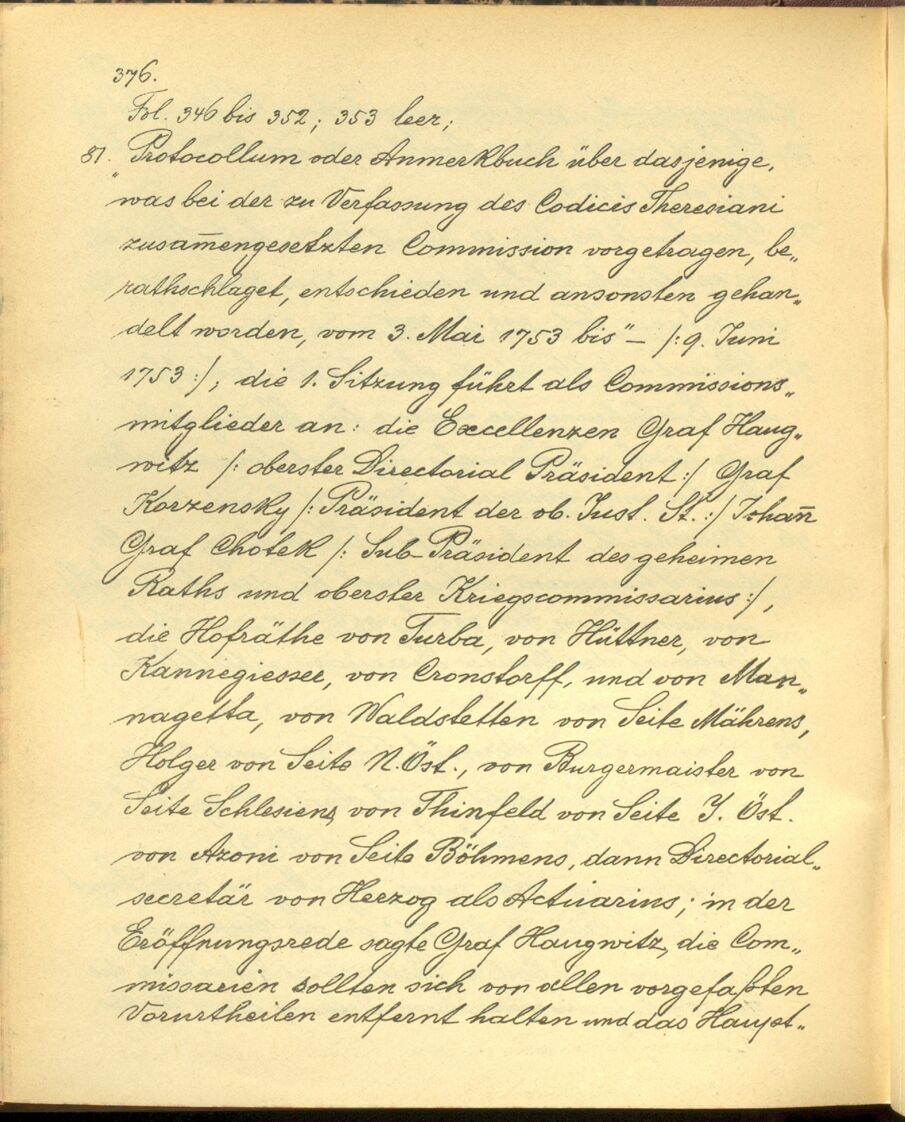 376.
Fol. 346 bis 352; 353 leer;
81. „Protocollum oder Anmerkbuch über dasjenige,
was bei der zu Verfassung des Codicis Theresiani
zusam̅engesetzten Commission vorgetragen, be„
rathschlaget, entschieden und ansonsten gehan„
delt worden, vom 3. Mai 1753 bis" – /: 9. Juni
1753 :/, die 1. Sitzung führt als Commissions„
mitglieder an: die Excellenzen Graf Haug„
witz /: oberster Directorial Präsident :/ Graf
Korzensky /: Präsident der ob. Just. St. :/ Johan̅
Graf Chotek /: Sub-Präsident des geheimen
Raths und oberster Kriegscommissarius :/,
die Hofräthe von Turba, von Hüttner, von
Kannegiesser, von Cronstorff, und von Man„
nagetta, von Waldstetten von Seite Mährens,
Holger von Seite N. Öst., von Burgermaister von
Seite Schlesiens, von Thinfeld von Seite I. Öst.
von Azoni von Seite Böhmens, dann Directorial„
secretär von Herzog als Actuarius; in der
Eröffnungsrede sagte Graf Haugwitz, die Com„
missarien sollten sich von allen vorgefaßten
Vorurtheilen entfernt halten und das Haupt„